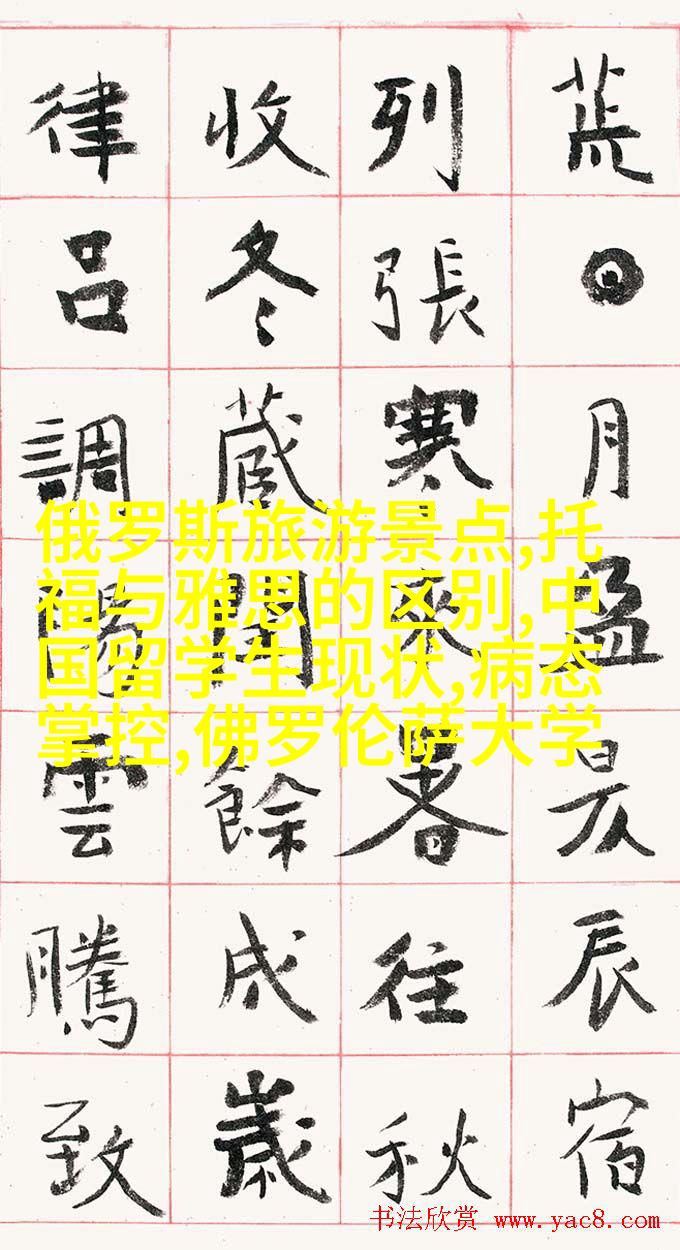 荒日月盈昃辰宿
列張寒來暑往秋
收冬藏閏餘成歲
律呂調陽雲騰致
俄罗斯旅游景点,托
福与雅思的区别,中
国留学生现状,病态
掌控,佛罗伦萨大学
书法欣赏 www.yac8.com